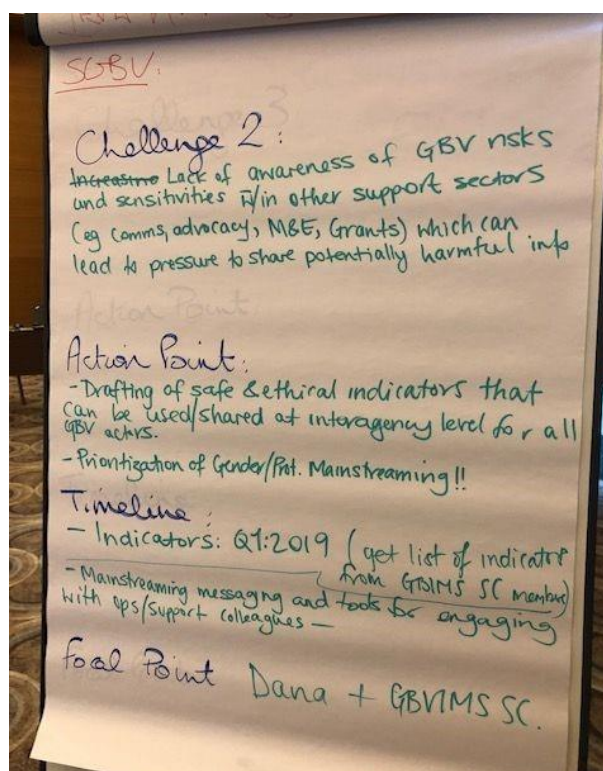 SGBV:
Challenge 2:
Increasing Lack of awareness of GBV risks
and sensitivities w/in other support sectors
(eg comms, advocacy, M&E, Grants) which can
lead to pressure to share potentially harmful info
Action Point:
- Drafting of safe & ethical indicators that
can be used/shared at interagency level for all
GBV actors.
- Prioritization of Gender/Prot. Mainstreaming!!
Timeline:
- Indicators: Q1:2019 (get list of indicators
from GBIMS SC members)
- Mainstreaming messaging and tools for engaging
with ops/support colleagues —
Focal Point Dana + GBVIMS SC.